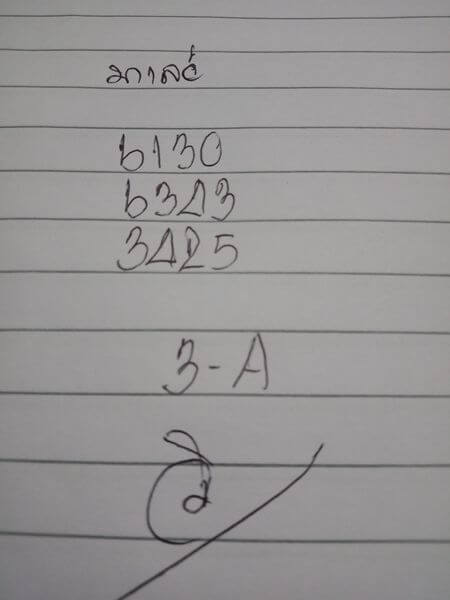 มาเลย์
6130
6343
3425
3-A